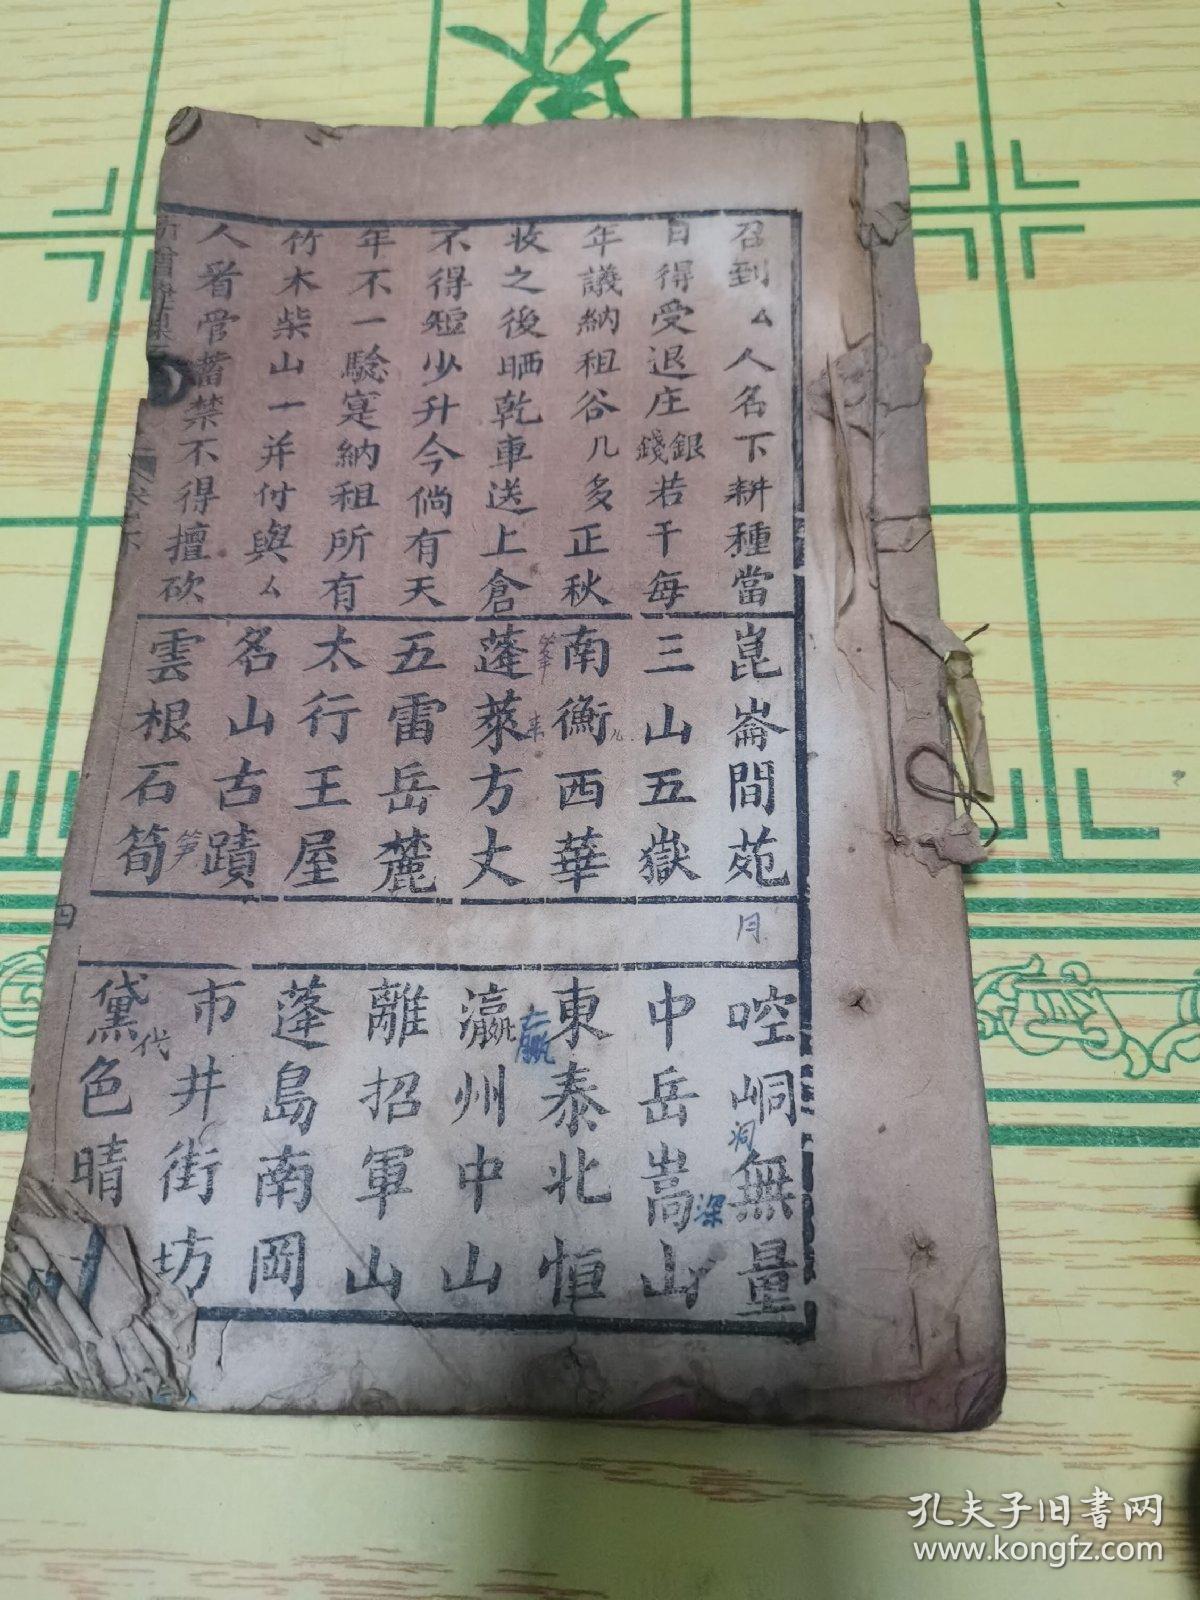 召到厶人名下耕種當
日得受退庄銀錢若干每
年議納租谷几多正秋
收之後晒乾車送上倉
不得短少升今倘有天
年不一驗寔納租所有
竹木柴山一并付與厶
人看管蓄禁不得擅砍
崑崙閬苑
三山五嶽
南衡西華
蓬萊方丈
五雷岳麓
太行王屋
名山古蹟
雲根石筍
月
崆峒無量
中岳嵩山
東泰北恒
瀛州中山
離招軍山
蓬島南岡
市井街坊
黛色晴
洞
來
笋
代
四
孔夫子旧书网
www.kongfz.com